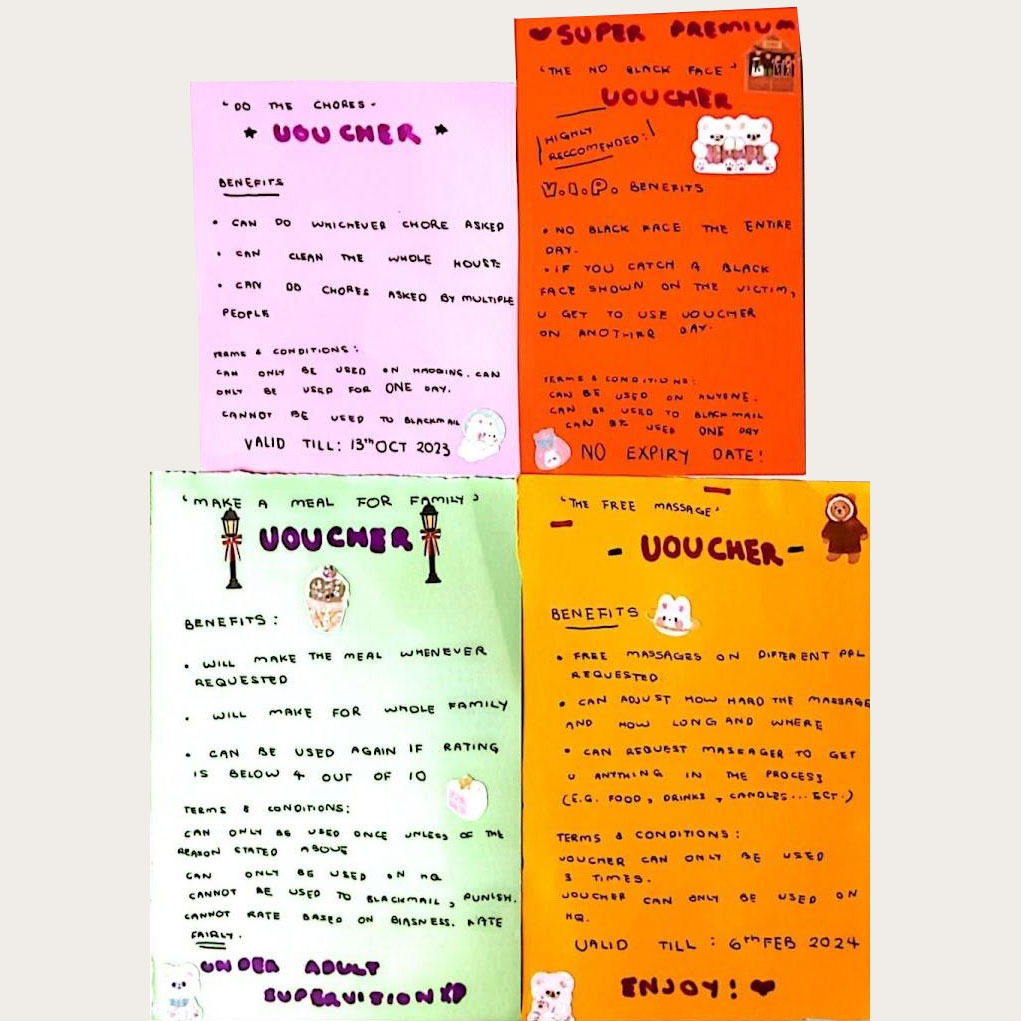 "DO THE CHORES"
VOUCHER
BENEFITS
• CAN DO WHICHEVER CHORE ASKED
• CAN CLEAN THE WHOLE HOUSE
• CAN DO CHORES ASKED BY MULTIPLE
PEOPLE
TERMS & CONDITIONS:
CAN ONLY BE USED ON CAN
ONLY BE USED FOR ONE DAY.
CANNOT BE USED TO BLACKMAIL
VALID TILL: 13TH OCT 2023
SUPER PREMIUM
'THE NO BLACK FACE'
VOUCHER
HIGHLY
RECCOMENDED!
V.I.P. BENEFITS
• NO BLACK FACE THE ENTIRE
DAY.
• IF YOU CATCH A BLACK
FACE SHOWN ON THE VICTIM,
U GET TO USE VOUCHER
ON ANOTHER DAY.
TERMS & CONDITIONS:
CAN BE USED ON ANYONE.
CAN BE USED TO BLACKMAIL
CAN BE USED ONE DAY
NO EXPIRY DATE!
'MAKE A MEAL FOR FAMILY'
VOUCHER
BENEFITS:
• WILL MAKE THE MEAL WHENEVER
REQUESTED
• WILL MAKE FOR WHOLE FAMILY
• CAN BE USED AGAIN IF RATING
IS BELOW 4 OUT OF 10
TERMS & CONDITIONS:
CAN ONLY BE USED ONCE UNLESS OF THE
REASON STATED ABOVE
CAN ONLY BE USED ON HQ
CANNOT BE USED TO BLACKMAIL, PUNISH.
CANNOT RATE BASED ON BIASNESS. RATE
FAIRLY.
UNDER ADULT
SUPERVISION XD
'THE FREE MASSAGE'
- VOUCHER -
BENEFITS
• FREE MASSAGES ON DIFFERENT PPL
REQUESTED
• CAN ADJUST HOW HARD THE MASSAGE
AND HOW LONG AND WHERE
• CAN REQUEST MASSAGER TO GET
U ANYTHING IN THE PROCESS
(E.G. FOOD, DRINKS, CANDLES... ECT.)
TERMS & CONDITIONS:
VOUCHER CAN ONLY BE USED
3 TIMES.
VOUCHER CAN ONLY BE USED ON
HQ.
VALID TILL: 6TH FEB 2024
ENJOY!